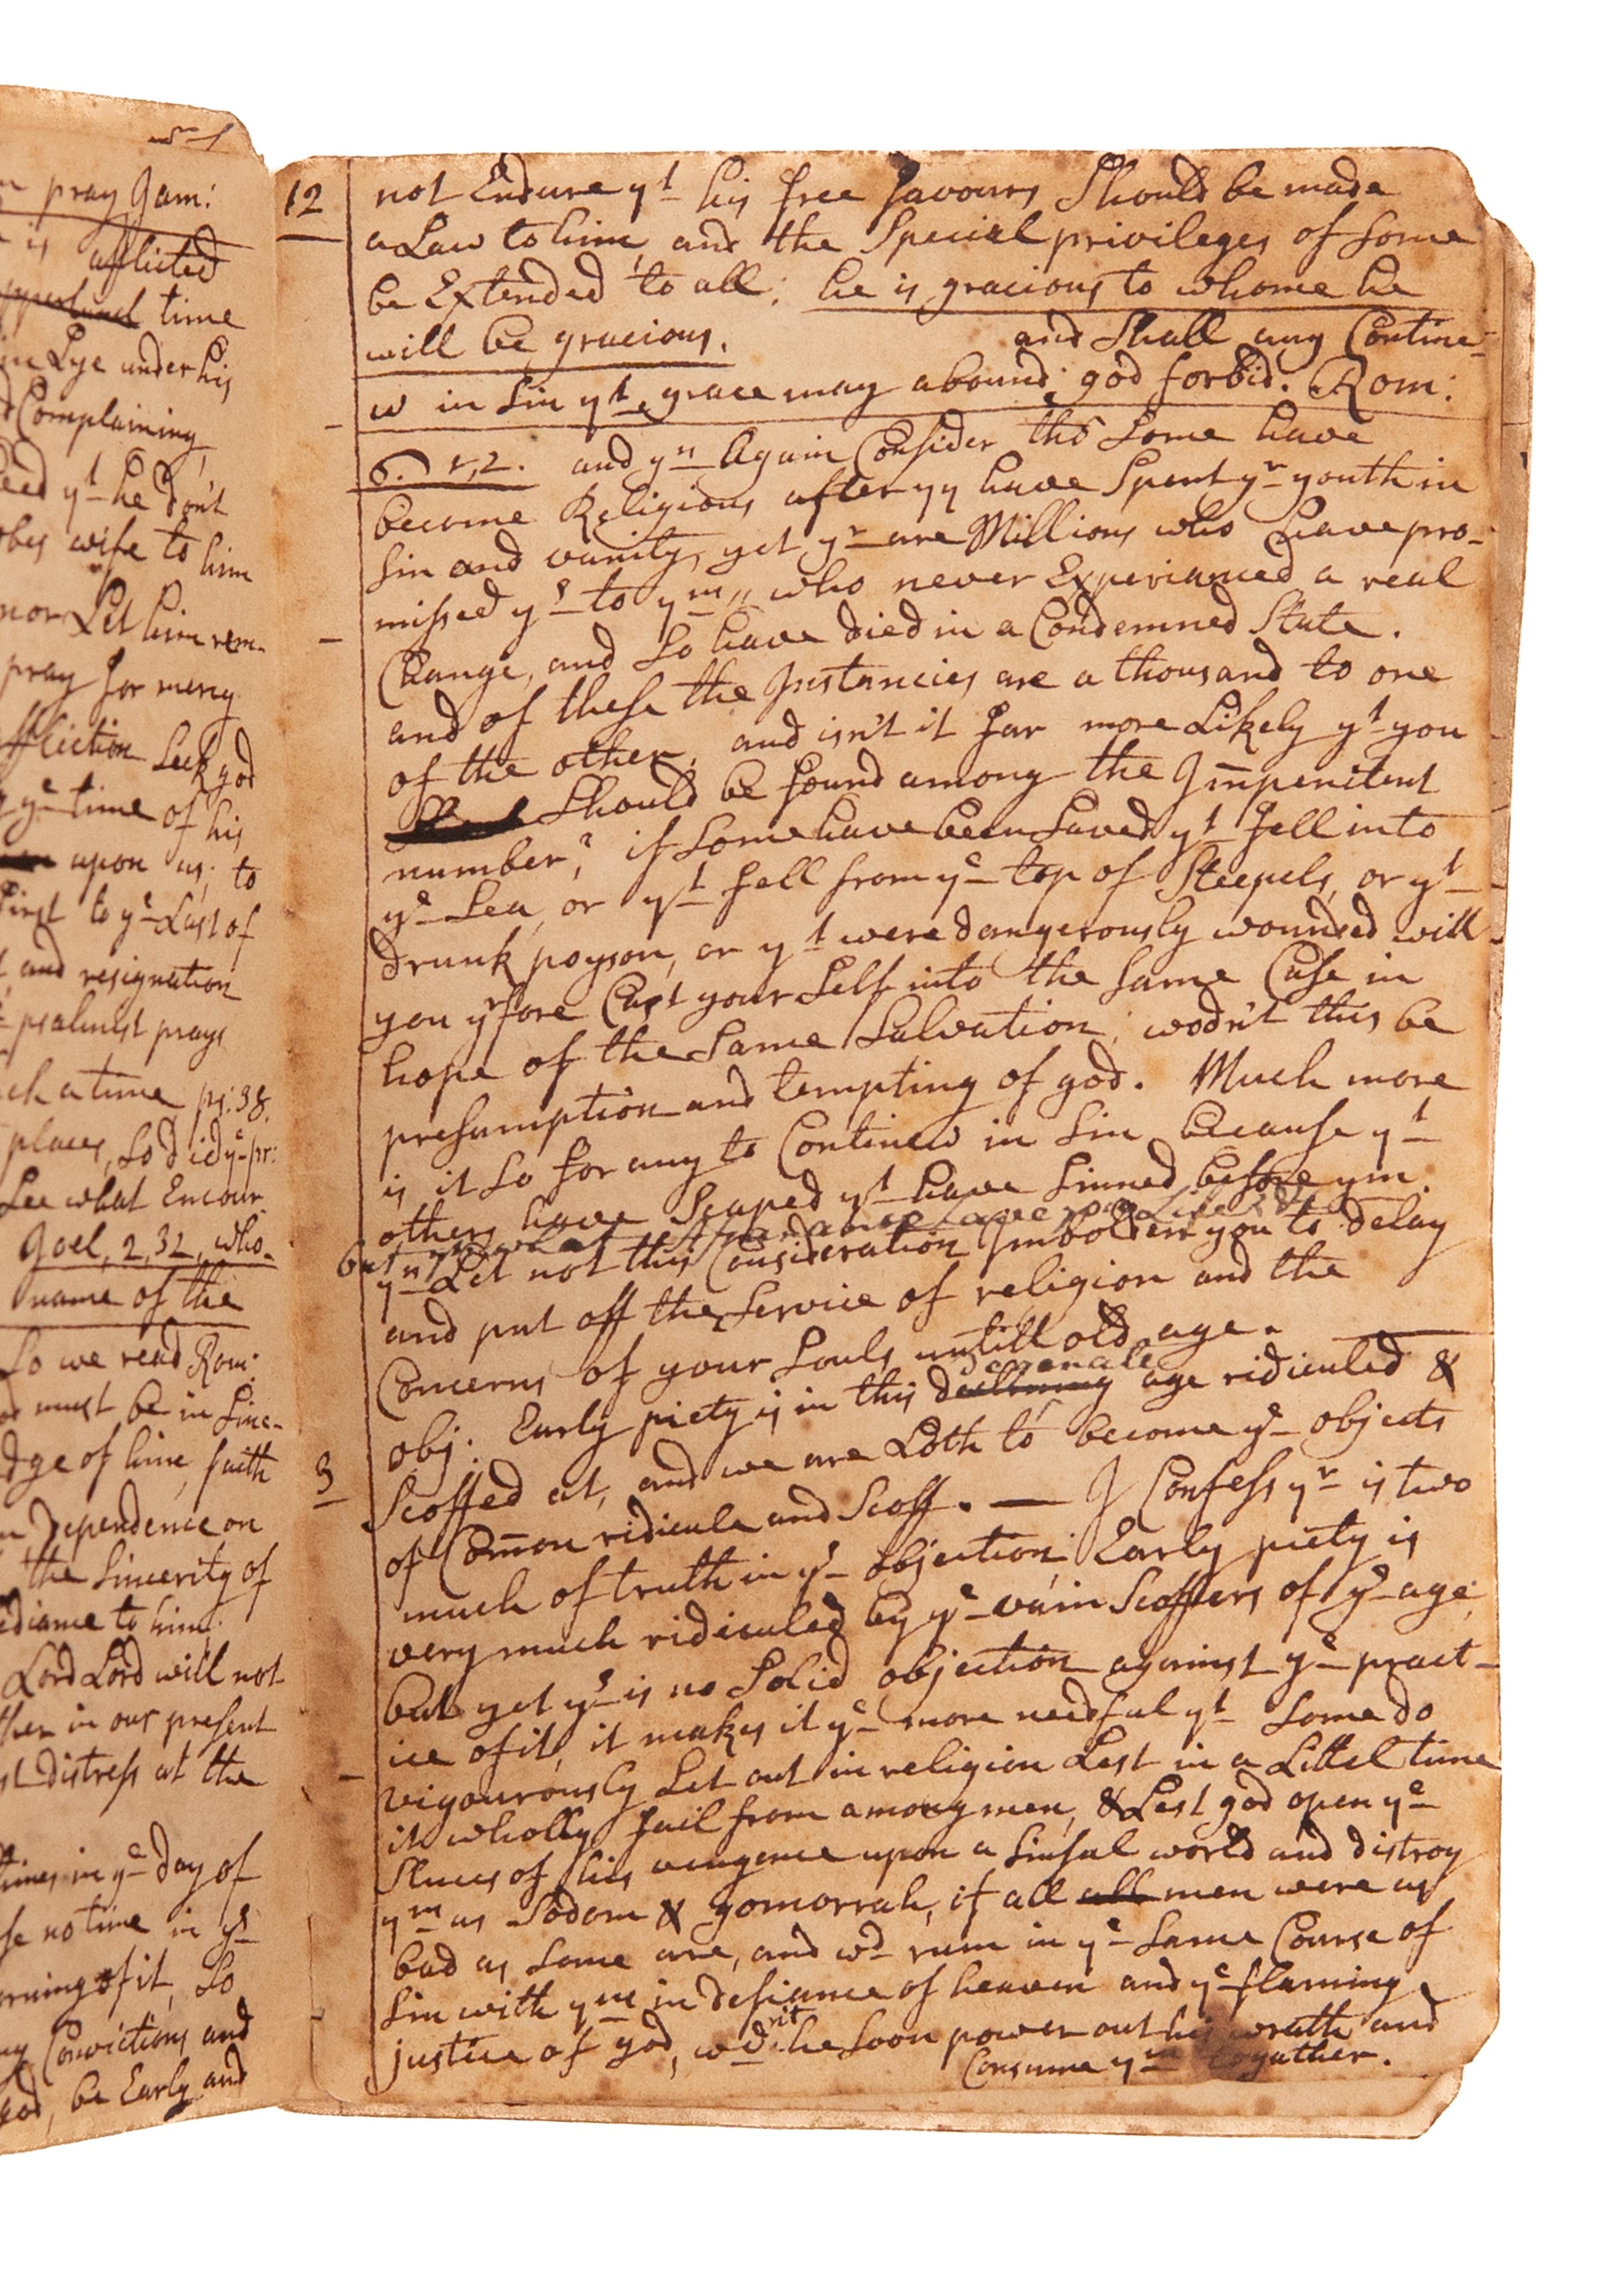 wn
pray Jam:
is afflicted
time
Lye under his
Complaining
yt he don't
wife to him
nor Let him rem-
pray for mercy
affliction Seek god
ye time of his
upon us; to
first to ye Last of
and resignation
psalmist prays
such a time ps: 38.
places, So did ye pr:
See what Encour
Joel, 2, 32, who-
name of the
So we read Rom:
must be in Sinc-
of him, faith
Dependence on
the Sincerity of
to him;
Lord Lord will not
in our present
distress at the
times in ye day of
no time in ye
of it, So
Convictions and
god, be Early and
12
not Endure yt his free favours Should be made
a Law to him, and the Special privileges of Some
be Extended to all; he is gracious to whome he
will be gracious. and Shall any Contine-
w in Sin yt grace may abound; god forbid. Rom:
6. 1,2. and yn Again Consider tho Some have
become Religious after yy have Spent yr youth in
Sin and vanity, yet yr are Millions who have pro-
missed ys to ym, who never Experianced a real
Change, and So have died in a Condemned State.
and of these the Instancies are a thousand to one
of the other, and isn't it far more Likely yt you
Should be found among the Impenitent
number? if Some have been Saved yt fell into
ye Sea, or yt fell from ye top of Steepels, or yt
drunk poyson, or yt were dangerously wounded will
you yrfore Cast your Self into the Same Case in
hope of the Same Salvation; wodn't this be
presumption and tempting of god. Much more
is it So for any to Continew in Sin because yt
others have Scaped yt have Sinned before ym.
but
yn Let not this Consideration Imbolden you to delay
and put off the Service of religion and the
Concerns of your Souls untill old age.
degenate
3
obj: Early piety is in this declining age ridiculed &
Scoffed at, and we are Loth to become ye objects
of Com̄on ridicule and Scoff. — I Confess yr is two
much of truth in ys objection; Early piety is
very much ridiculed by ye vain Scoffers of ys age;
but yet ys is no Solid objection against ye pract-
ice of it, it makes it ye more needful yt Some do
vigourously Set out in religion Lest in a Littel time
it wholly fail from among men, & Lest god open ye
Sluces of his vengence upon a Sinful world and distroy
ym as Sodom & gomorrah, if all all men were as
bad as Some are, and wd runn in ye Same Course of
Sin with ym in defiance of heaven and ye flaming
justice of god, wd nt he Soon power out his wrath and
Consume ym togather.